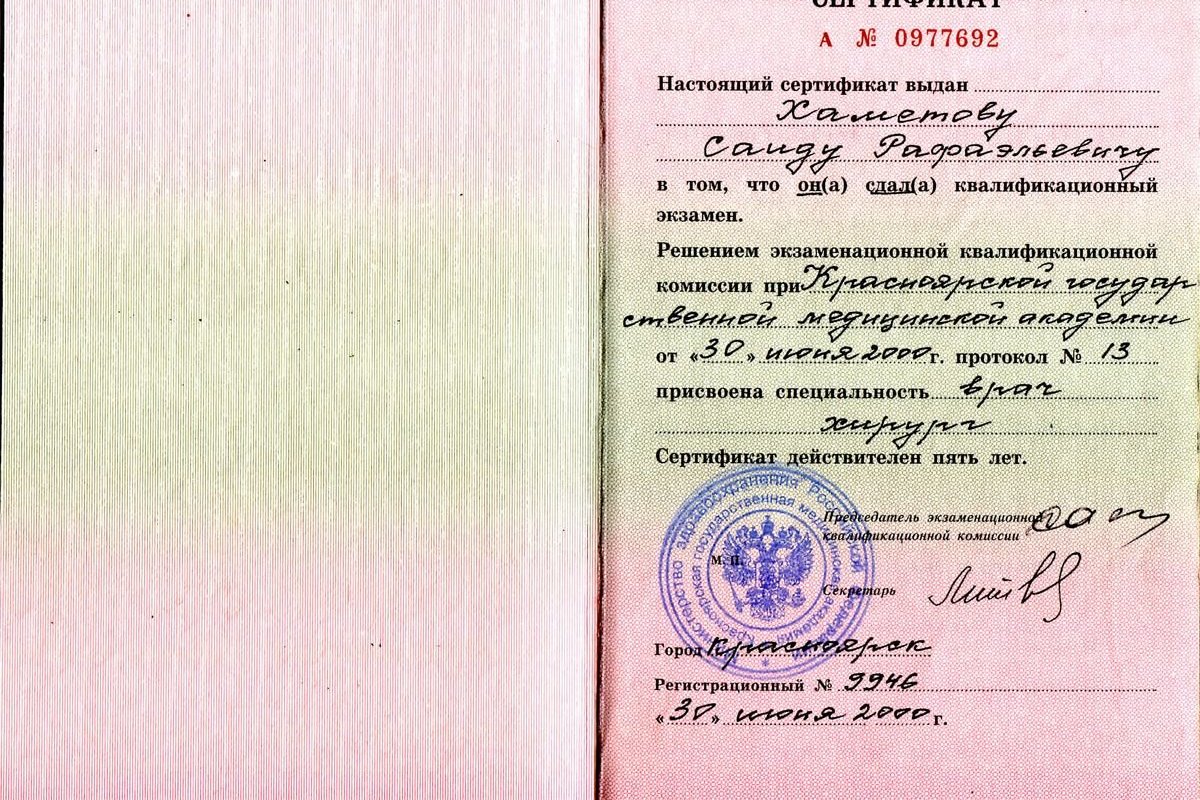 СЕРТИФИКАТ
А № 0977692
Настоящий сертификат выдан
Хаметову
Саиду Рафаэльевичу
в том, что он(а) сдал(а) квалификационный
экзамен.
Решением экзаменационной квалификационной
комиссии при Красноярской государ
ственной медицинской академии
от «30» июня 2000 г. протокол № 13
присвоена специальность врач
хирург
Сертификат действителен пять лет.
Председатель экзаменационной
квалификационной комиссии
М. П.
Секретарь
Министерство здравоохранения Российской Федерации
Красноярская государственная медицинская академия
Город Красноярск
Регистрационный № 9946
«30» июня 2000 г.